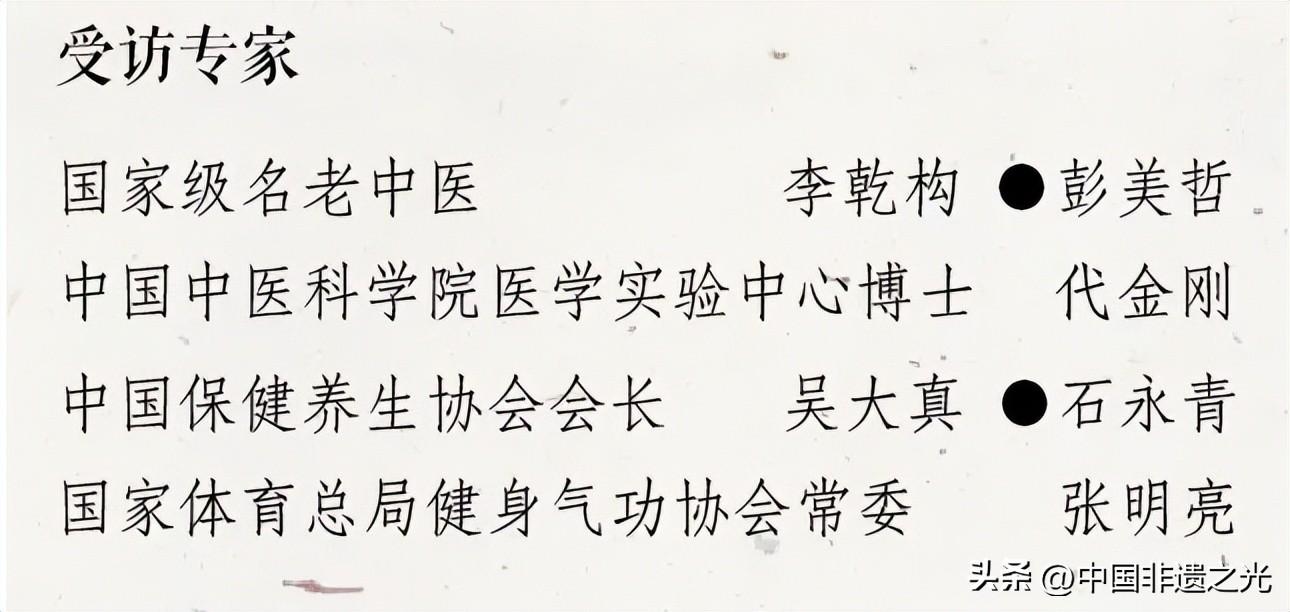 受访专家
国家级名老中医 李乾构 ●彭美哲
中国中医科学院医学实验中心博士 代金刚
中国保健养生协会会长 吴大真 ●石永青
国家体育总局健身气功协会常委 张明亮
头条 @中国非遗之光